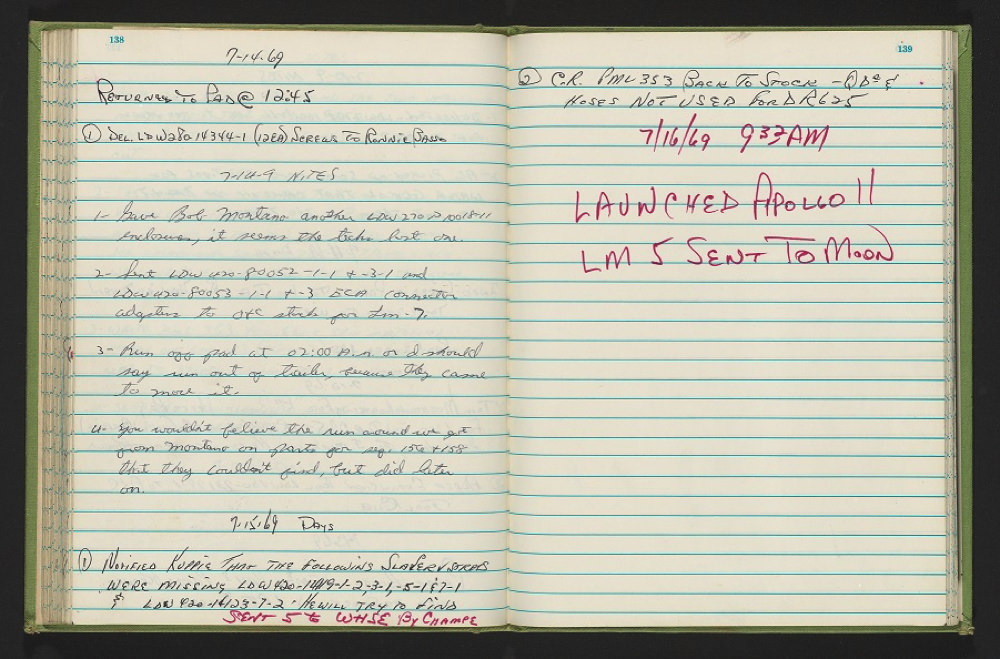 138
7-14-69
RETURNED TO PAD @ 12:45
① DEL. LDW280-14344-1 (12EA) SCREWS TO RONNIE BASSO
7-14-9 NITES
1- Gave Bob Montano another LDW 270 10018-11
enclosures, it seems the techs lost one.
2- Sent LDW 420-80052-1-1 + -3-1 and
LDW 420-80053-1-1 + -3 ECA connector
adapters to O+C for Lm-7.
3- Run off pad at 02:00 A.M. or I should
say run out of trailer, because they came
to move it.
4- You wouldn't believe the run around we got
from Montano on parts for seq. 156 + 158
that they couldn't find, but did later
on.
7-15-69 DAYS
① NOTIFIED THAT THE FOLLOWING STRAPS
WERE MISSING LDW 420-
& LDW 420-14123-7-2 HE WILL TRY TO FIND
SENT 5 to WHSE By CHAMPE
139
② C.R. PML 353 BACK TO STOCK - QDs &
HOSES NOT USED FOR DR625
7/16/69 932 AM
LAUNCHED APOLLO 11
LM 5 SENT TO MOON